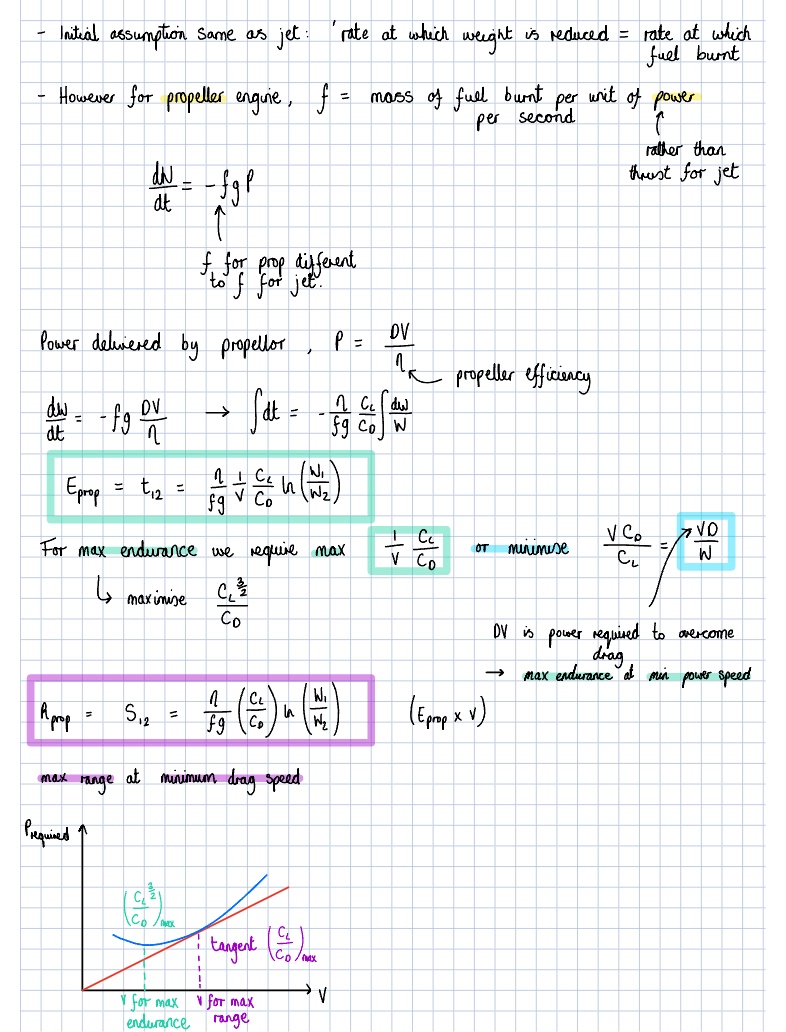 - Initial assumption same as jet: 'rate at which weight is reduced = rate at which
fuel burnt
- However for propeller engine, f = mass of fuel burnt per unit of power
per second
rather than
thrust for jet
dW/dt = -fgP
f for prop different
to f for jet.
Power delivered by propellor, P = DV/η
propeller efficiency
dW/dt = -fg DV/η → ∫dt = -η/fg C_L/C_D ∫dW/W
E_prop = t_12 = η/fg 1/V C_L/C_D ln(W_1/W_2)
For max endurance we require max 1/V C_L/C_D or minimise VC_D/C_L = VD/W
↳ maximise C_L^3/2/C_D
DV is power required to overcome
drag
→ max endurance at min power speed
R_prop = S_12 = η/fg (C_L/C_D) ln (W_1/W_2) (E_prop x V)
max range at minimum drag speed
P_required
(C_L^3/2/C_D)_max
tangent (C_L/C_D)_max
V
V for max
endurance
V for max
range